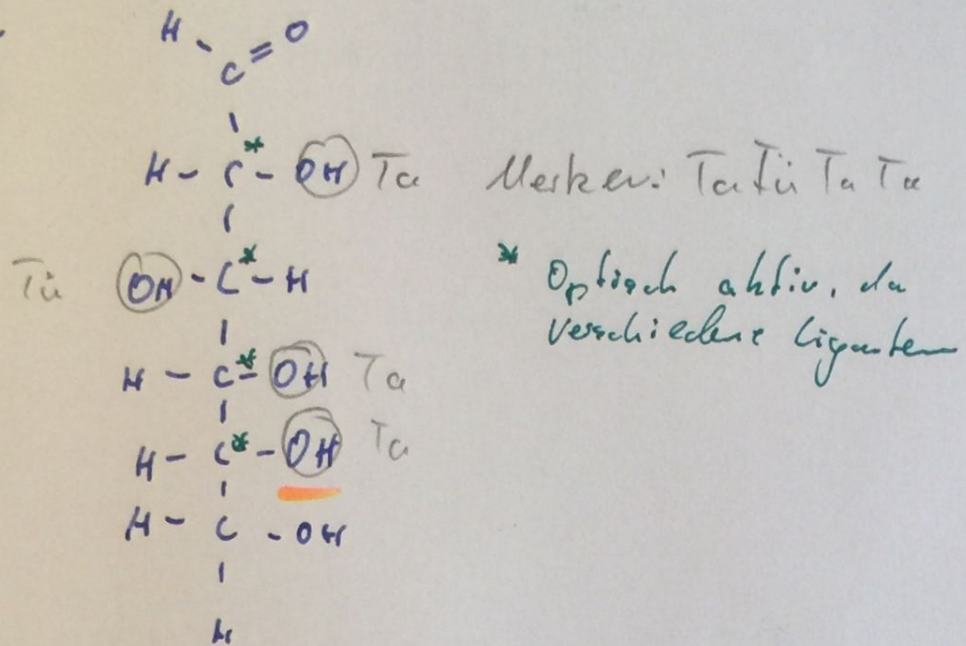 H O
C
H - C* - OH Ta Merken: Ta Tü Ta Ta
Tü OH - C* - H * Optisch aktiv, da
verschiedene Liganten
H - C* - OH Ta
H - C* - OH Ta
H - C - OH
H